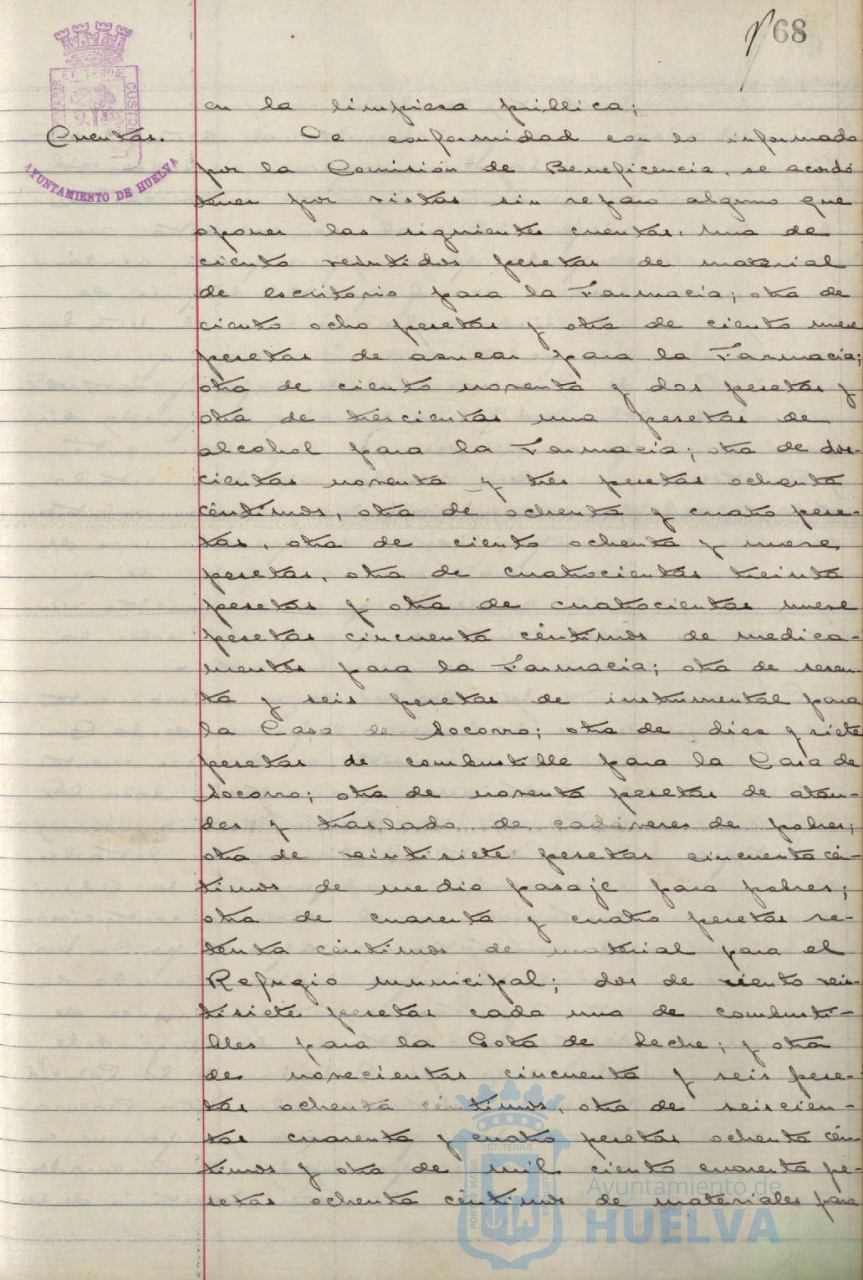 68
en la limpieza pública;
Cuentas. De conformidad con lo informado
por la Comisión de Beneficencia, se acordó
tener por vistas sin reparo alguno que
oponer las siguientes cuentas: una de
ciento veintidos pesetas de material
de escritorio para la Farmacia; otra de
ciento ocho pesetas y otra de ciento nueve
pesetas de azucar para la Farmacia;
otra de ciento noventa y dos pesetas y
otra de trescientas una pesetas de
alcohol para la Farmacia; otra de dos-
cientas noventa y tres pesetas ochenta
céntimos, otra de ochenta y cuatro pese-
tas, otra de ciento ochenta y nueve
pesetas, otra de cuatrocientas treinta
pesetas y otra de cuatrocientas nueve
pesetas cincuenta céntimos de medica-
mentos para la Farmacia; otra de sesen-
ta y seis pesetas de instrumental para
la Casa de Socorro; otra de diez y siete
pesetas de combustible para la Casa de
Socorro; otra de noventa pesetas de ataú-
des y traslado de cadáveres de pobres;
otra de veintisiete pesetas cincuenta cén-
timos de medio pasaje para pobres;
otra de cuarenta y cuatro pesetas se-
tenta céntimos de material para el
Refugio municipal; dos de ciento vein-
tisiete pesetas cada una de combusti-
bles para la Gota de Leche; y otra
de novecientas cincuenta y seis pese-
tas ochenta céntimos, otra de seiscien-
tas cuarenta y cuatro pesetas ochenta cén-
timos y otra de mil ciento cuarenta pe-
setas ochenta céntimos de materiales para
AYUNTAMIENTO DE HUELVA
Ayuntamiento de
HUELVA